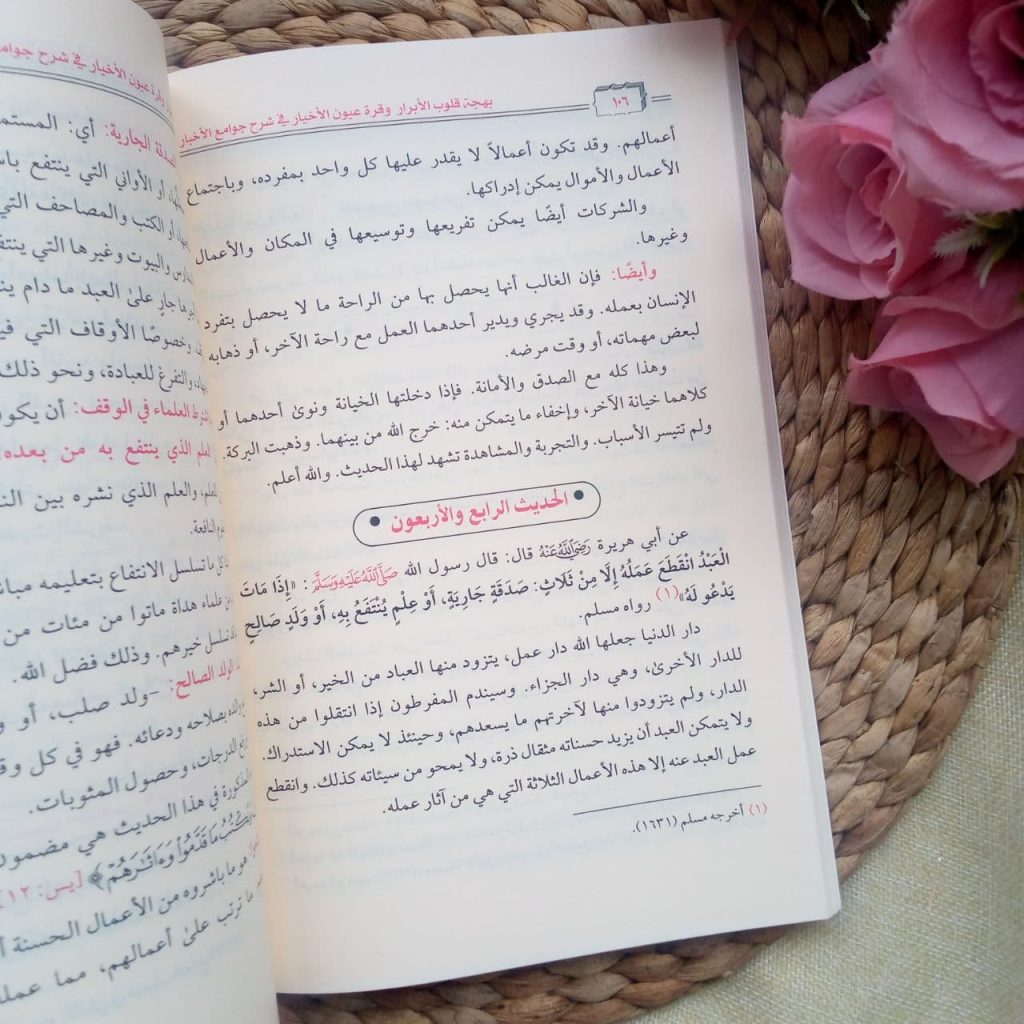 ١٠٦
بهجة قلوب الأبرار وقرة عيون الأخيار في شرح جوامع الأخبار
أعمالهم. وقد تكون أعمالاً لا يقدر عليها كل واحد بمفرده، وباجتماع
الأعمال والأموال يمكن إدراكها.
والشركات أيضًا يمكن تفريعها وتوسيعها في المكان والأعمال
وغيرها.
وأيضًا: فإن الغالب أنها يحصل بها من الراحة ما لا يحصل بتفرد
الإنسان بعمله. وقد يجري ويدير أحدهما العمل مع راحة الآخر، أو ذهابه
لبعض مهماته، أو وقت مرضه.
وهذا كله مع الصدق والأمانة. فإذا دخلتها الخيانة ونوىٰ أحدهما أو
كلاهما خيانة الآخر، وإخفاء ما يتمكن منه: خرج الله من بينهما. وذهبت البركة.
ولم تتيسر الأسباب. والتجربة والمشاهدة تشهد لهذا الحديث. والله أعلم.
الحديث الرابع والأربعون
عن أبي هريرة رَضِيَ اللَّهُ عَنْهُ قال: قال رسول الله صَلَّى اللَّهُ عَلَيْهِ وَسَلَّمَ: «إِذَا مَاتَ
الْعَبْدُ انْقَطَعَ عَمَلُهُ إِلَّا مِنْ ثَلَاثٍ: صَدَقَةٍ جَارِيَةٍ، أَوْ عِلْمٍ يُنْتَفَعُ بِهِ، أَوْ وَلَدٍ صَالِحٍ
يَدْعُو لَهُ»(١) رواه مسلم.
دار الدنيا جعلها الله دار عمل، يتزود منها العباد من الخير، أو الشر،
للدار الأخرىٰ، وهي دار الجزاء. وسيندم المفرطون إذا انتقلوا من هذه
الدار، ولم يتزودوا منها لآخرتهم ما يسعدهم، وحينئذ لا يمكن الاستدراك.
ولا يتمكن العبد أن يزيد حسناته مثقال ذرة، ولا يمحو من سيئاته كذلك. وانقطع
عمل العبد عنه إلا هذه الأعمال الثلاثة التي هي من آثار عمله.
(١) أخرجه مسلم (١٦٣١).
وقرة عيون الأخيار في شرح جوامع
الصدقة الجارية: أي: المستمر
أو الأواني التي ينتفع باس
أو الكتب والمصاحف التي
والبيوت وغيرها التي ينتف
جارٍ علىٰ العبد ما دام ين
وخصوصًا الأوقاف التي في
والتفرغ للعبادة، ونحو ذلك
العلماء في الوقف: أن يكو
العلم الذي ينتفع به من بعده:
والعلم الذي نشره بين الن
النافعة.
ما تسلسل الانتفاع بتعليمه مبا
من علماء هداة ماتوا من مئات من
تسلسل خيرهم. وذلك فضل الله.
الولد الصالح: -ولد صلب، أو و
بصلاحه ودعائه. فهو في كل وق
الدرجات، وحصول المثوبات.
المذكورة في هذا الحديث هي مضمون
مَا قَدَّمُوا۟ وَءَاثَـٰرَهُمْ﴾ [يس: ١٢]
هو ما باشروه من الأعمال الحسنة أ
ما ترتب علىٰ أعمالهم، مما عمله